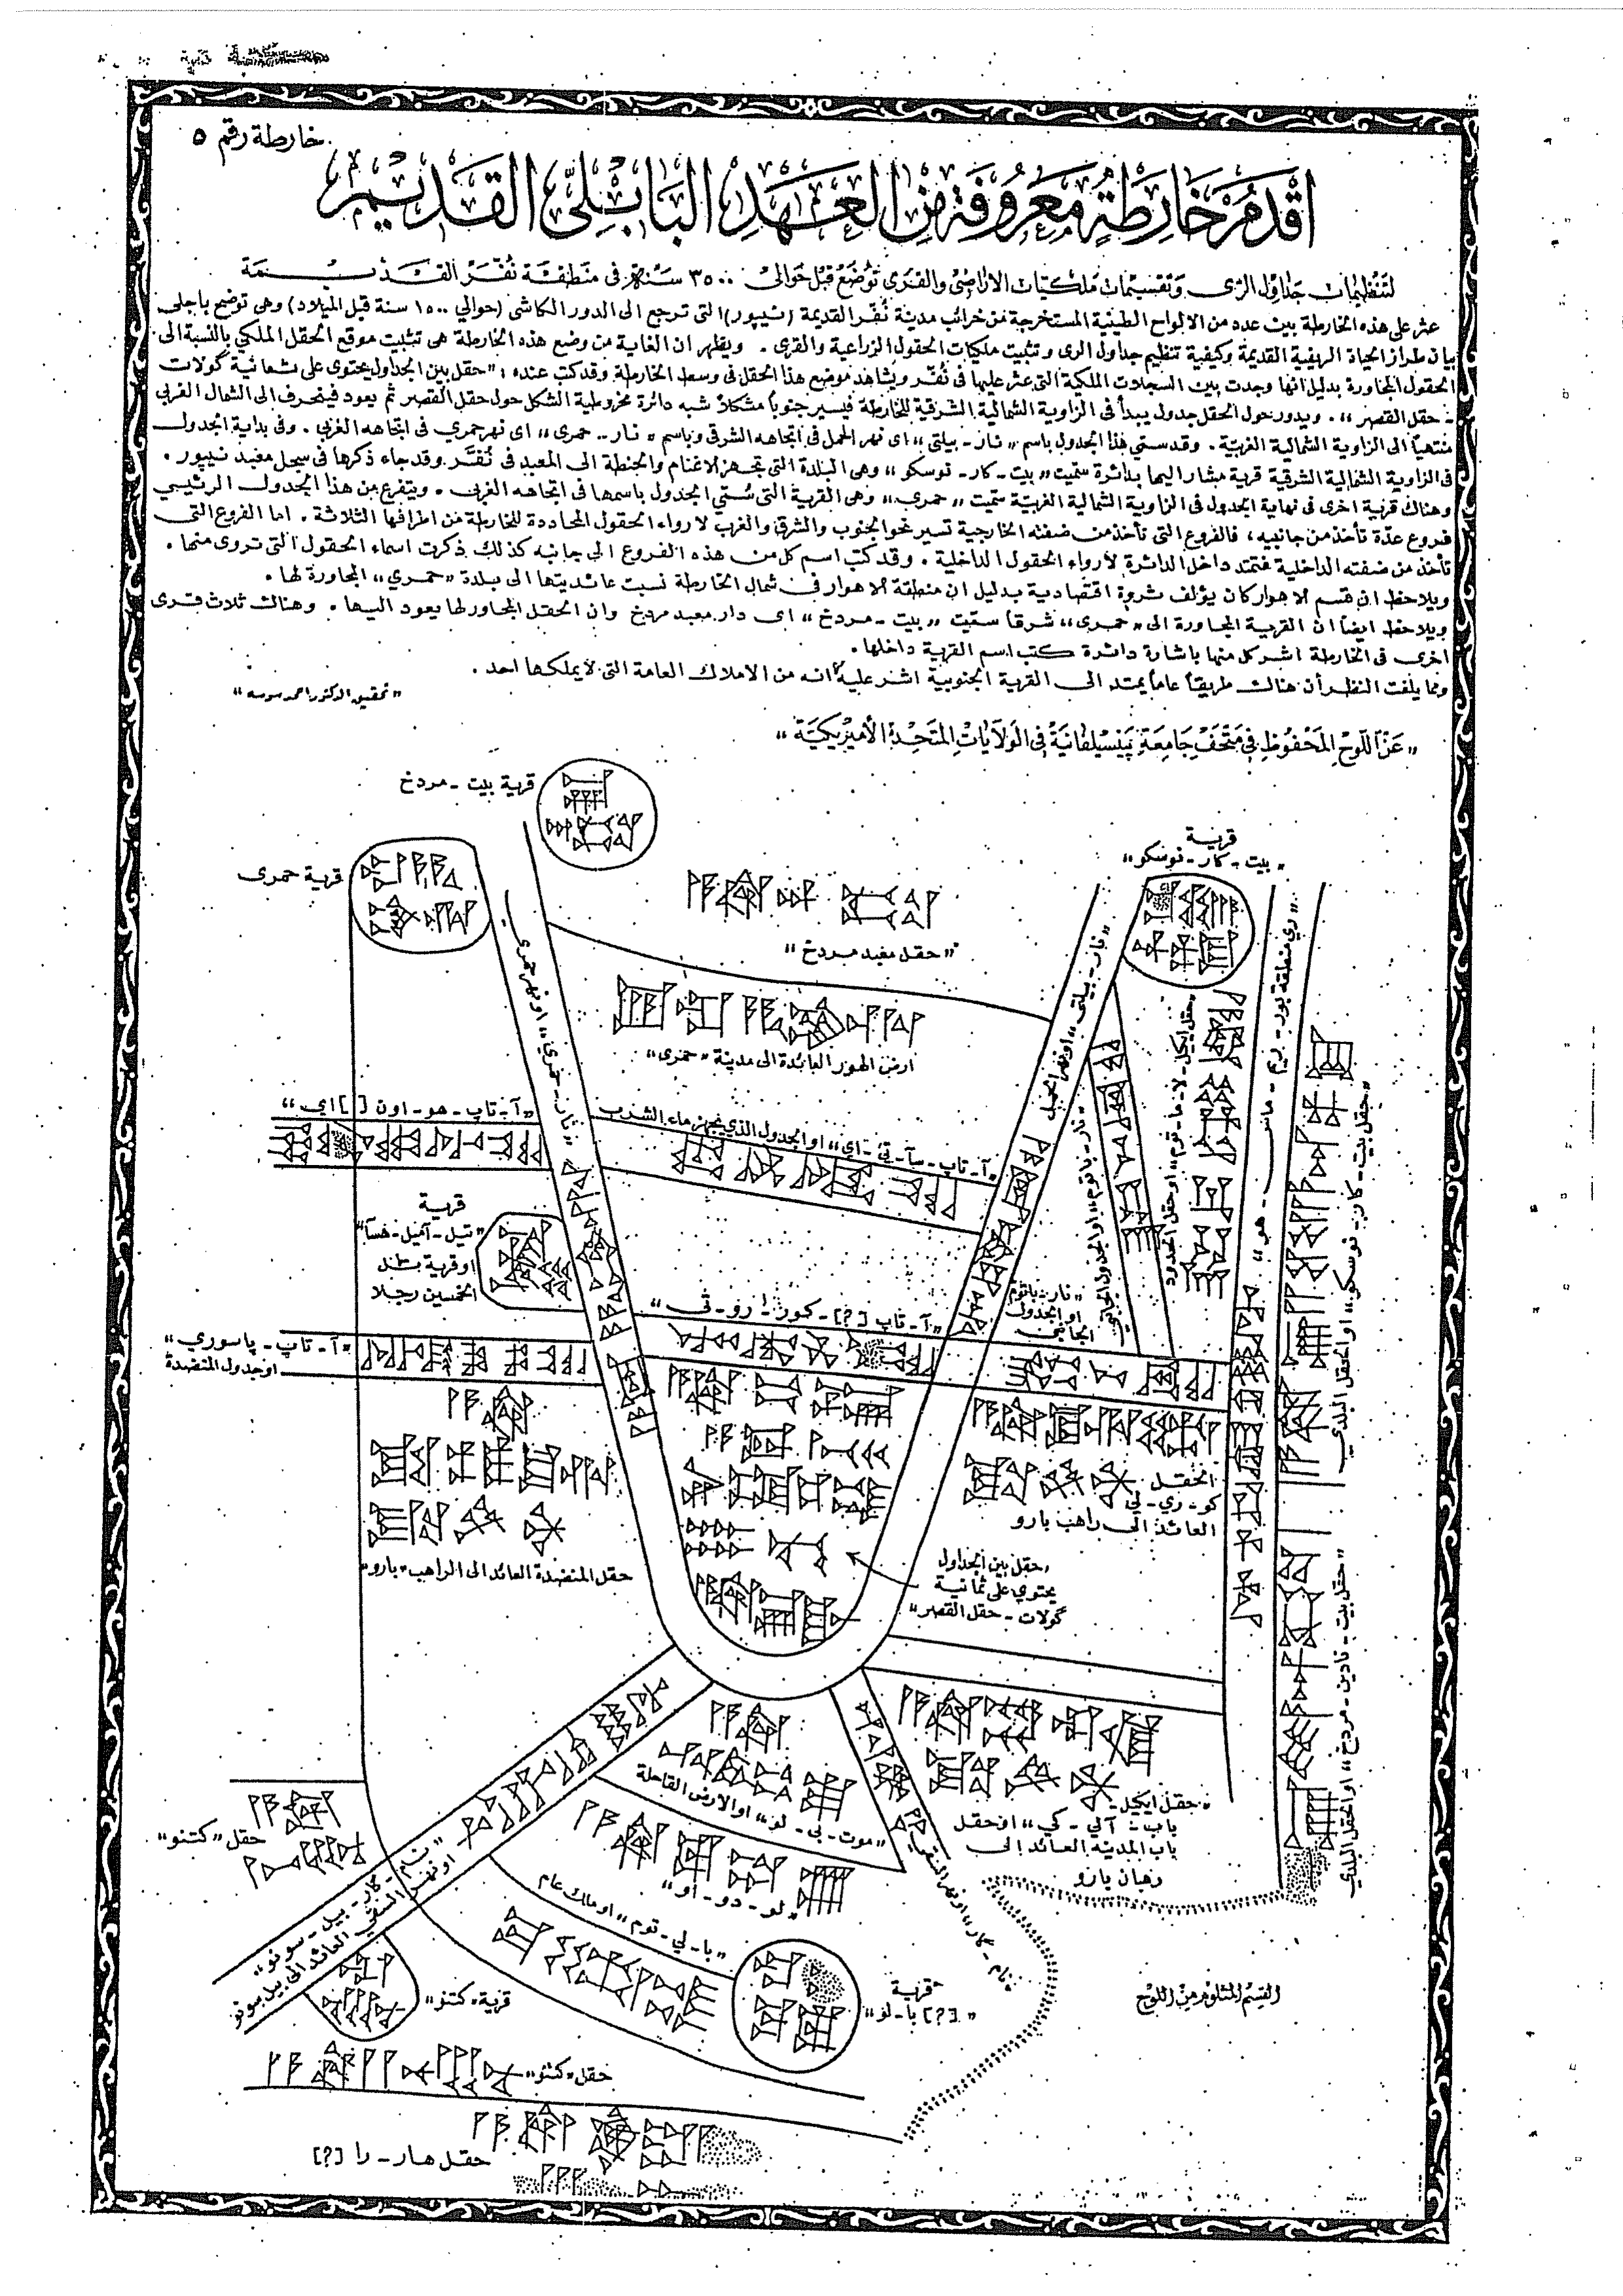 خارطة رقم ٥
أقدم خارطة معروفة من العهد البابلي القديم
لتنظيمات جداول الري وتقسيمات ملكيات الاراضي والقرى توضع قبل حوالي ٣٥٠٠ سنة في منطقة نفر القديمة
عثر على هذه الخارطة بين عدد من الالواح الطينية المستخرجة من خرائب مدينة نفر القديمة (نيپور) التي ترجع الى الدور الكاشي (حوالي ١٥٠٠ سنة قبل الميلاد) وهي توضح باجلى
بيان طراز الحياة الريفية القديمة وكيفية تنظيم جداول الري وتثبيت ملكيات الحقول الزراعية والقرى . ويظهر ان الغاية من وضع هذه الخارطة هي تثبيت موقع الحقل الملكي بالنسبة الى
الحقول المجاورة بدليل انها وجدت بين السجلات الملكية التي عثر عليها في نفر ويشاهد موضع هذا الحقل في وسط الخارطة وقد كتب عنده : "حقل بين الجداول يحتوي على ثمانية گولات
- حقل القصر" . ويدور حول الحقل جدول يبدأ في الزاوية الشمالية الشرقية للخارطة فيسير جنوباً مشكلاً شبه دائرة مخروطية الشكل حول حقل القصر ثم يعود فينحرف الى الشمال الغربي
منتهياً الى الزاوية الشمالية الغربية . وقد سمي هذا الجدول باسم "نار - بيلتي" اي نهر الحمل في اتجاهه الشرقي وباسم "نار - حمري" اي نهر حمري في اتجاهه الغربي . وفي بداية الجدول
في الزاوية الشمالية الشرقية قرية مشار اليها بدائرة سميت "بيت - كار - نوسكو" وهي البلدة التي تجهز الاغنام والحنطة الى المعبد في نفر وقد جاء ذكرها في سجل معبد نيپور .
وهناك قرية اخرى في نهاية الجدول في الزاوية الشمالية الغربية سميت "حمري" وهي القرية التي سمي الجدول باسمها في اتجاهه الغربي . ويتفرع من هذا الجدول الرئيسي
فروع عدة تأخذ من جانبيه ، فالفروع التي تأخذ من ضفته الخارجية تسير نحو الجنوب والشرق والغرب لارواء الحقول المحاددة للخارطة من اطرافها الثلاثة . اما الفروع التي
تأخذ من ضفته الداخلية فتمتد داخل الدائرة لارواء الحقول الداخلية . وقد كتب اسم كل من هذه الفروع الى جانبه كذلك ذكرت اسماء الحقول التي تروى منها .
ويلاحظ ان قسم الاهوار كان يؤلف ثروة اقتصادية بدليل ان منطقة الاهوار في شمال الخارطة نسبت عائديتها الى بلدة "حمري" المجاورة لها .
ويلاحظ ايضاً ان القرية المجاورة الى "حمري" شرقاً سميت "بيت - مردخ" اي دار معبد مردخ وان الحقل المجاور لها يعود اليها . وهناك ثلاث قرى
اخرى في الخارطة اشر كل منها باشارة دائرة كتب اسم القرية داخلها .
ومما يلفت النظر أن هنالك طريقاً عاماً يمتد الى القرية الجنوبية اشر عليه انه من الاملاك العامة التي لا يملكها احد .
"تحقيق الدكتور احمد سوسه"
"عن اللوح المحفوظ في متحف جامعة پنسيلفانية في الولايات المتحدة الأميريكية"
قرية بيت - مردخ
قرية
"بيت - كار - نوسكو"
قرية حمري
"حقل معبد مردخ"
"نار - بيلتي" او نهر الحمل
"نار - حمري" او نهر حمري
ارض الهور العائدة الى مدينة "حمري"
"آ - تاپ - هو - اون [ ] اي"
قرية
او قرية تل
الخمسين رجلا
"نار - باتوم
او الجدول
الجانبي
"آ - تاپ - پاسوري"
او جدول المنضدة
الحقل
كو - ري - لي
العائد الى راهب بارو
حقل المنضدة العائد الى الراهب "بارو"
"حقل بين الجداول
يحتوي على ثمانية
گولات - حقل القصر"
"حقل بيت - كار - نوسكو" او الحقل البلدي
"حقل بيت - نادين - مردخ" او الحقل البلدي
"موت - بي - لو" او الارض القاحلة
"حقل ايكل -
باب - آلي - كي" او حقل
باب المدينة العائد الى
رهبان بارو
حقل "كتنو"
"لو - دو - او"
"با - لي - توم" او ملك عام
قرية
"[؟] با - لو"
قرية "كتنو"
القسم المثلوم من اللوح
حقل "كتنو"
حقل هار - را [؟]